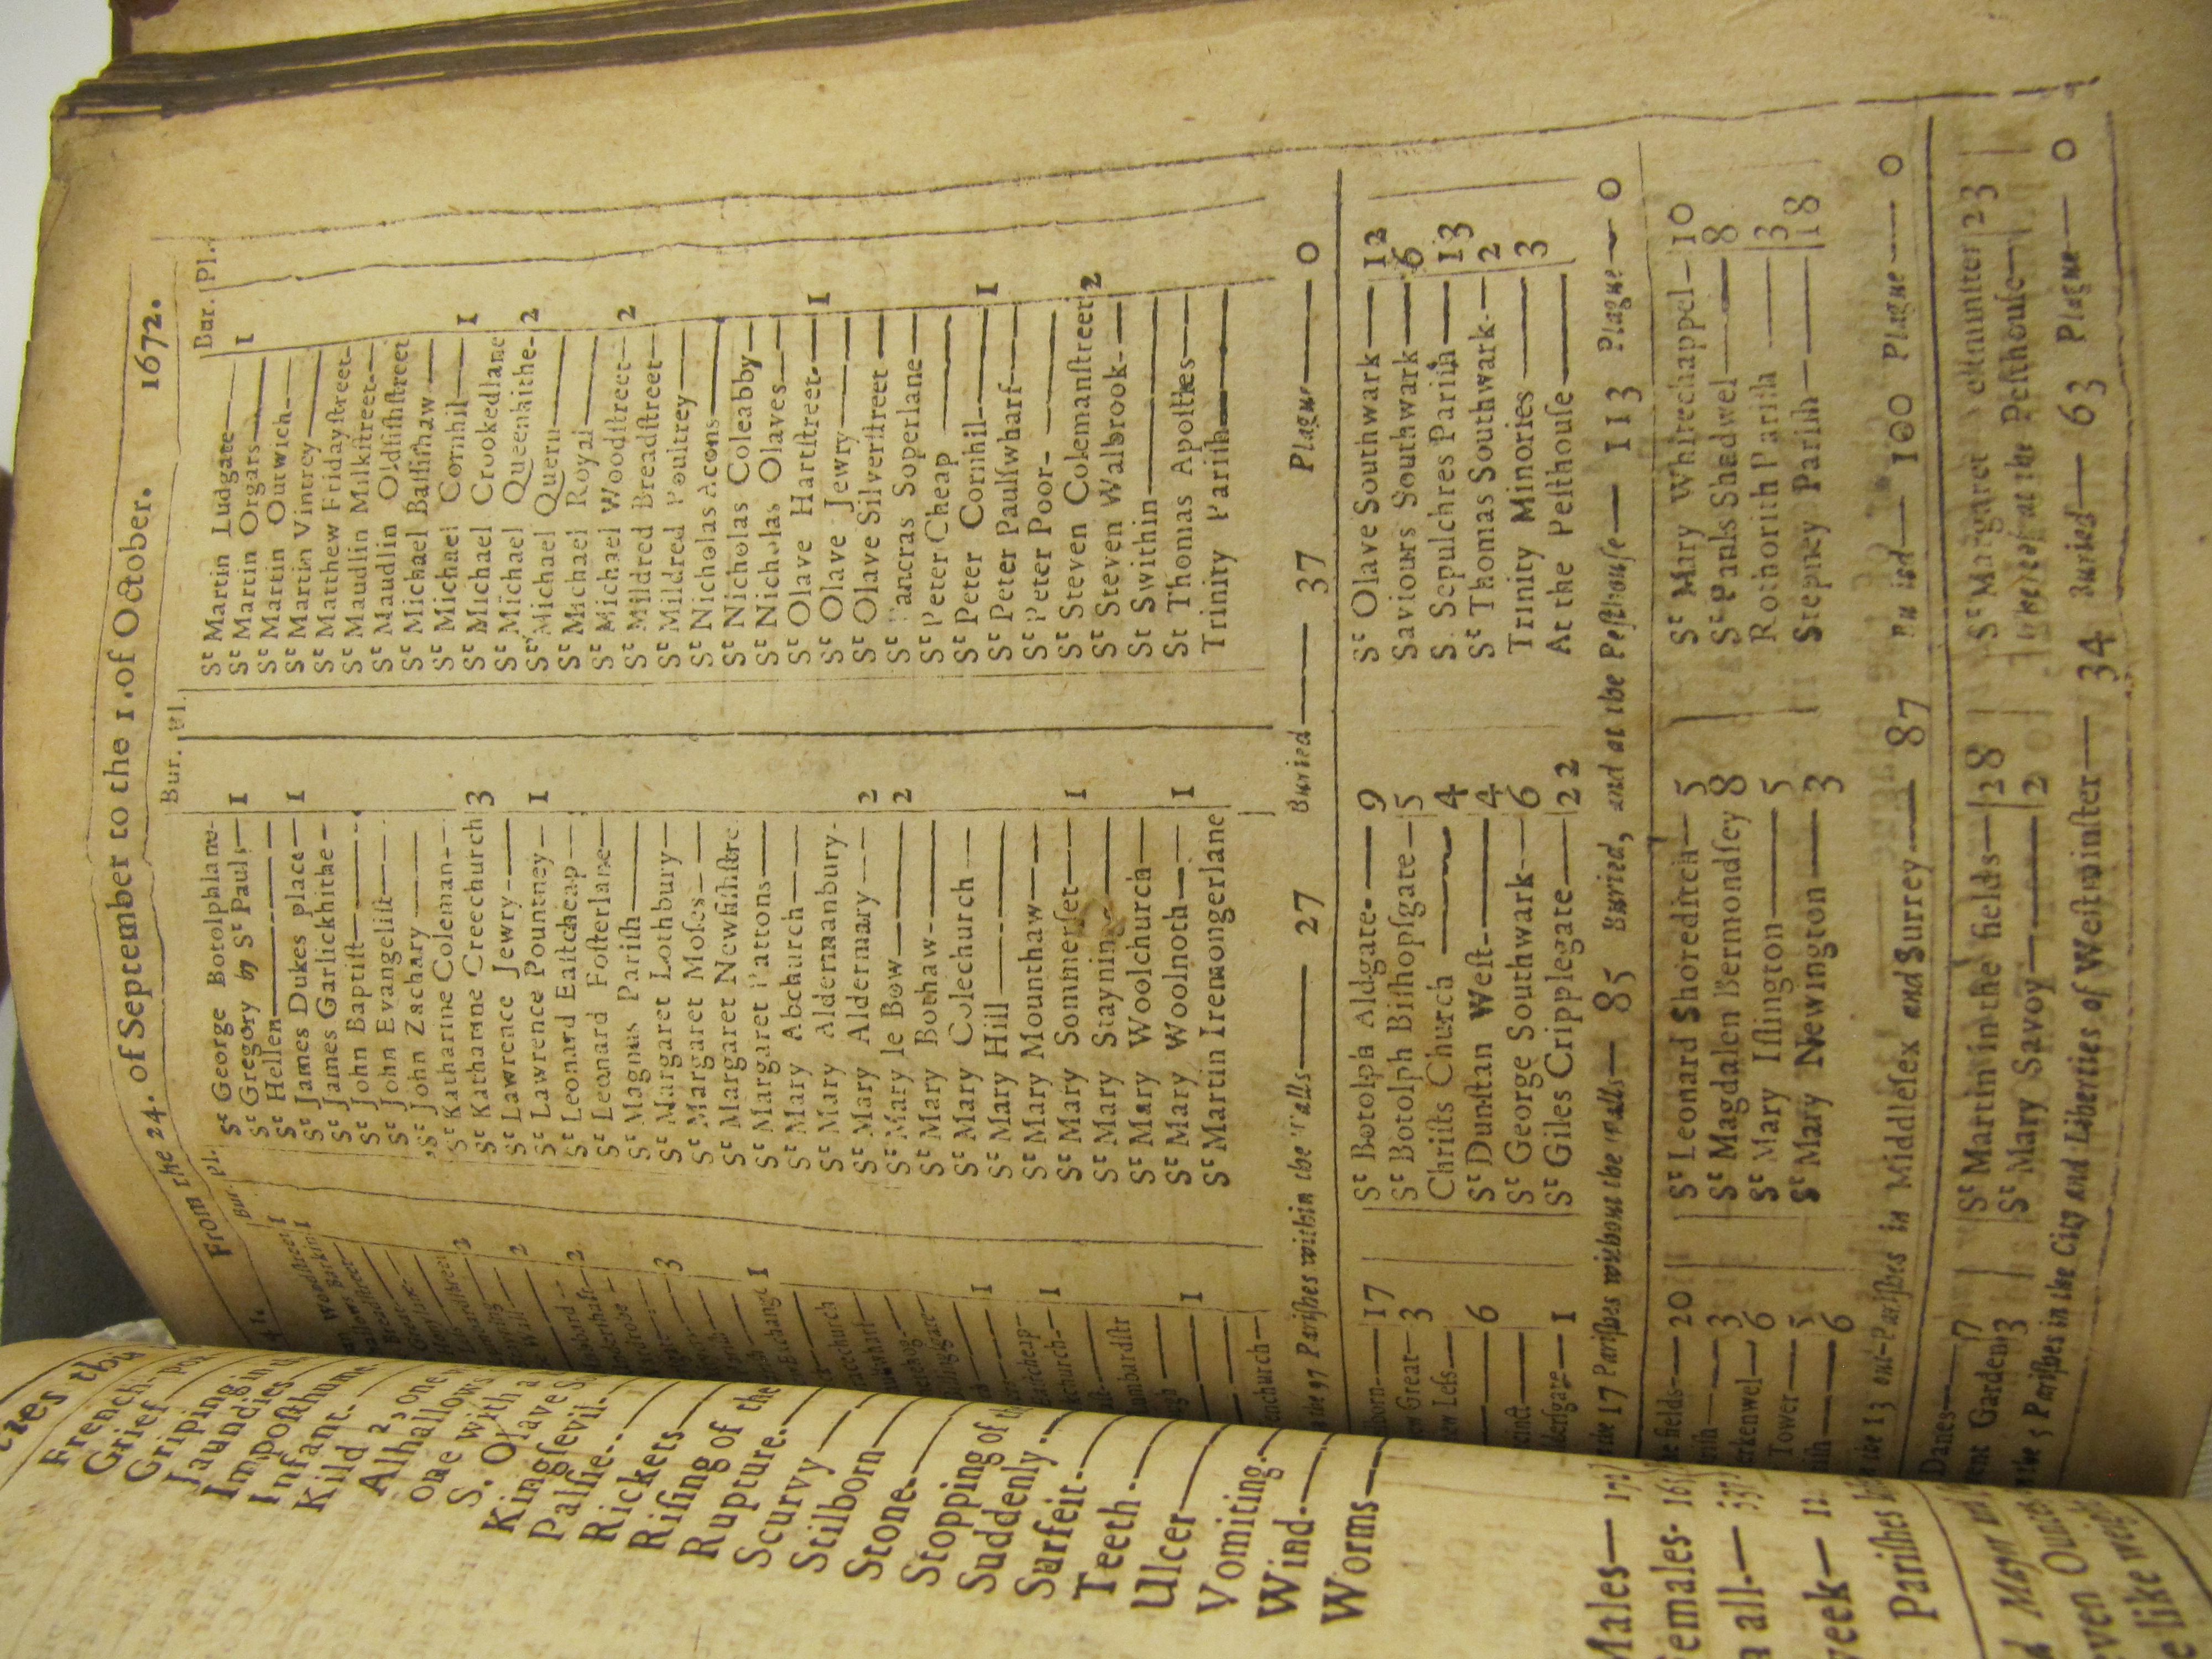 From the 24. of September to the 1. of October. 1672.
Bur. Pl.
Bur. Pl.
Bur. Pl.
Woodſtreet 1
Barkin 1
Breadſtreet
2
2
2
3
Exchange 1
1
Eaſtcheap
1
Lumbardſtr
1
Sᵗ George Botolphlane
Sᵗ Gregory by Sᵗ Pauls 1
Sᵗ Hellen
Sᵗ James Dukes place 1
Sᵗ James Garlickhithe
Sᵗ John Baptiſt
Sᵗ John Evangeliſt
Sᵗ John Zachary
Sᵗ Katharine Coleman
Sᵗ Katharine Creechurch 3
Sᵗ Lawrence Jewry
Sᵗ Lawrence Pountney 1
Sᵗ Leonard Eaſtcheap
Sᵗ Leonard Foſterlane
Sᵗ Magnus Pariſh
Sᵗ Margaret Lothbury
Sᵗ Margaret Moſes
Sᵗ Margaret Newfiſhſtre
Sᵗ Margaret Pattons
Sᵗ Mary Abchurch
Sᵗ Mary Aldermanbury
Sᵗ Mary Aldermary 2
Sᵗ Mary le Bow 2
Sᵗ Mary Bothaw
Sᵗ Mary Colechurch
Sᵗ Mary Hill
Sᵗ Mary Mounthaw
Sᵗ Mary Sommerſet 1
Sᵗ Mary Stayning
Sᵗ Mary Woolchurch
Sᵗ Mary Woolnoth 1
Sᵗ Martin Iremongerlane
Sᵗ Martin Ludgate 1
Sᵗ Martin Orgars
Sᵗ Martin Outwich
Sᵗ Martin Vintrey
Sᵗ Matthew Fridayſtreet
Sᵗ Maudlin Milkſtreet
Sᵗ Maudlin Oldfiſhſtreet
Sᵗ Michael Baſſiſhaw
Sᵗ Michael Cornhil 1
Sᵗ Michael Crookedlane
Sᵗ Michael Queenhithe 2
Sᵗ Michael Quern
Sᵗ Michael Royal
Sᵗ Michael Woodſtreet 2
Sᵗ Mildred Breadſtreet
Sᵗ Mildred Poultrey
Sᵗ Nicholas Acons
Sᵗ Nicholas Coleabby
Sᵗ Nicholas Olaves
Sᵗ Olave Hartſtreet 1
Sᵗ Olave Jewry
Sᵗ Olave Silverſtreet
Sᵗ Pancras Soperlane
Sᵗ Peter Cheap
Sᵗ Peter Cornhil 1
Sᵗ Peter Paulſwharf
Sᵗ Peter Poor
Sᵗ Steven Colemanſtreet 2
Sᵗ Steven Walbrook
St Swithin
St Thomas Apoſtles
Trinity Pariſh
the 97 Pariſhes within the Walls 27 Buried 37 Plague 0
17
Great 3
Leſs
6
1
Sᵗ Botolph Aldgate 9
Sᵗ Botolph Biſhopſgate 5
Chriſts Church 4
Sᵗ Dunſtan Weſt 4
Sᵗ George Southwark 6
Sᵗ Giles Cripplegate 22
Sᵗ Olave Southwark 12
Saviours Southwark 6
S. Sepulchres Pariſh 13
Sᵗ Thomas Southwark 2
Trinity Minories 3
At the Peſthouſe
the 17 Pariſhes without the Walls 85 Buried, and at the Peſthouſe 113 Plague 0
fields 20
3
6
Tower 5
6
Sᵗ Leonard Shoreditch 5
Sᵗ Magdalen Bermondſey 8
Sᵗ Mary Iſlington 5
Sᵗ Mary Newington 3
Sᵗ Mary Whitechappel 10
Sᵗ Pauls Shadwel 8
Rothorith Pariſh 3
Stepney Pariſh 18
the 13 out-Pariſhes in Middleſex and Surrey 87 Buried 100 Plague 0
Danes 7
Garden 3
Sᵗ Martin in the fields 28
Sᵗ Mary Savoy 2
Sᵗ Margaret Weſtminſter 23
whereof at the Peſthouſe
the 5 Pariſhes in the City and Liberties of Weſtminſter 34 Buried 63 Plague 0
French-pox
Grief
Griping in
Jaundies
Impoſthume
Infant
Kild 2, one
Alhallows
one with a
S. Olave
Kingſevil
Palſie
Rickets
Riſing of the
Rupture
Scurvy
Stilborn
Stone
Stopping of
Suddenly
Surfeit
Teeth
Ulcer
Vomiting
Wind
Worms
Males
Females
all
week
Pariſhes
Mayor
Ounces
like